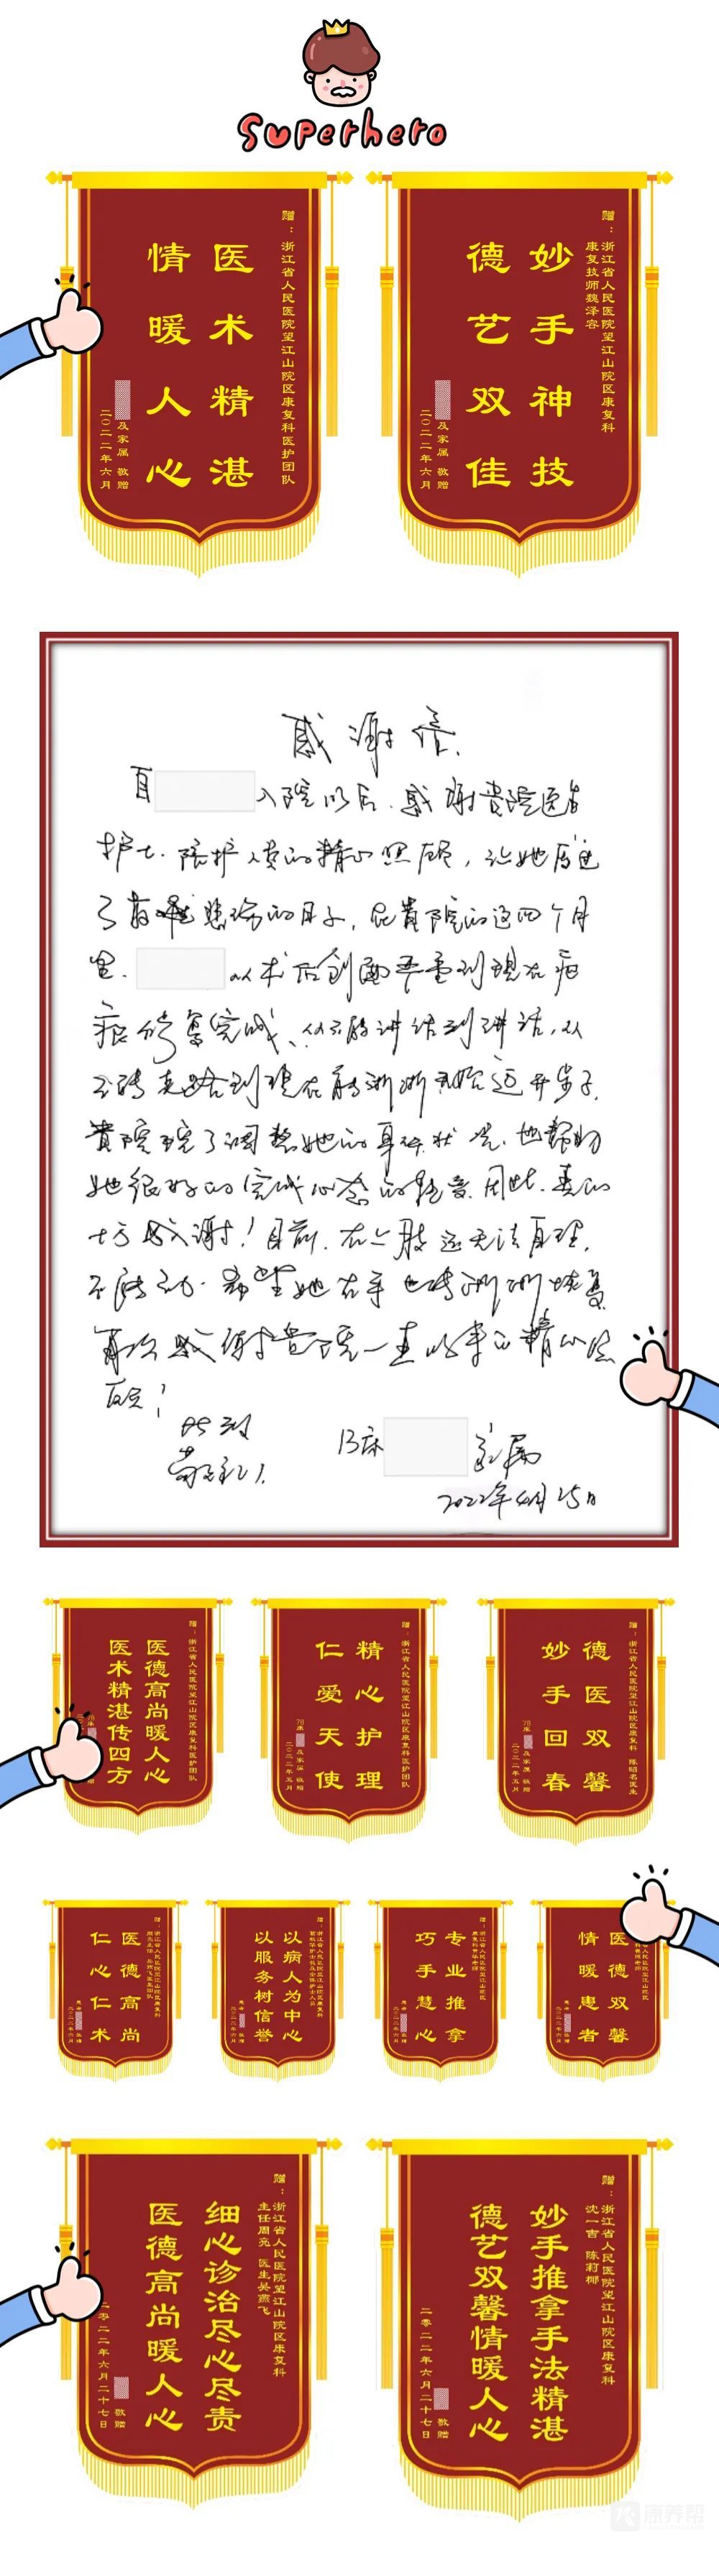 Superhero
赠：浙江省人民医院望江山院区康复科医护团队
医术精湛
情暖人心
及家属 敬赠
二〇二二年六月
赠：浙江省人民医院望江山院区康复科
康复技师魏泽容
妙手神技
德艺双佳
及家属 敬赠
二〇二二年六月
感谢信
自 入院以后，感谢贵院医生
护士、陪护人员的精心照顾，让她度过
了最 悲伤的日子，在贵院的这四个月
里， 从术后创面严重到现在疤
痕修复完成、从不能讲话到讲话，从
不能走路到现在能渐渐 迈开步子，
贵院 了调整她的身体状况，也帮助
她很好的完成心态的转变，因此，真的
十分感谢！目前，右上肢还无法自理，
不能动，希望她右手也能渐渐恢复
再次感谢贵院一直以来的精心照
顾！
此致
敬礼！
13床 家属
2022年4月25日
赠：浙江省人民医院望江山院区康复科医护团队
医德高尚暖人心
医术精湛传四方
赠：浙江省人民医院望江山院区康复科医护团队
精心护理
仁爱天使
78床 及家属 敬赠
二〇二二年五月
赠：浙江省人民医院望江山院区康复科 陈昭名医生
德医双馨
妙手回春
78床 及家属 敬赠
二〇二二年五月
赠：浙江省人民医院望江山院区康复科
医德高尚
仁心仁术
二〇二二年六月
赠：浙江省人民医院望江山院区康复科
以病人为中心
以服务树信誉
二〇二二年六月
赠：浙江省人民医院望江山院区
专业推拿
巧手慧心
二〇二二年六月
医德双馨
情暖患者
二〇二二年六月
赠：浙江省人民医院望江山院区康复科
主任周亮 医生吴燕飞
细心诊治尽心尽责
医德高尚暖人心
敬赠
二零二二年六月二十七日
赠：浙江省人民医院望江山院区康复科
沈一吉 陈莉椰
妙手推拿手法精湛
德艺双馨情暖人心
敬赠
二零二二年六月二十七日
康养帮